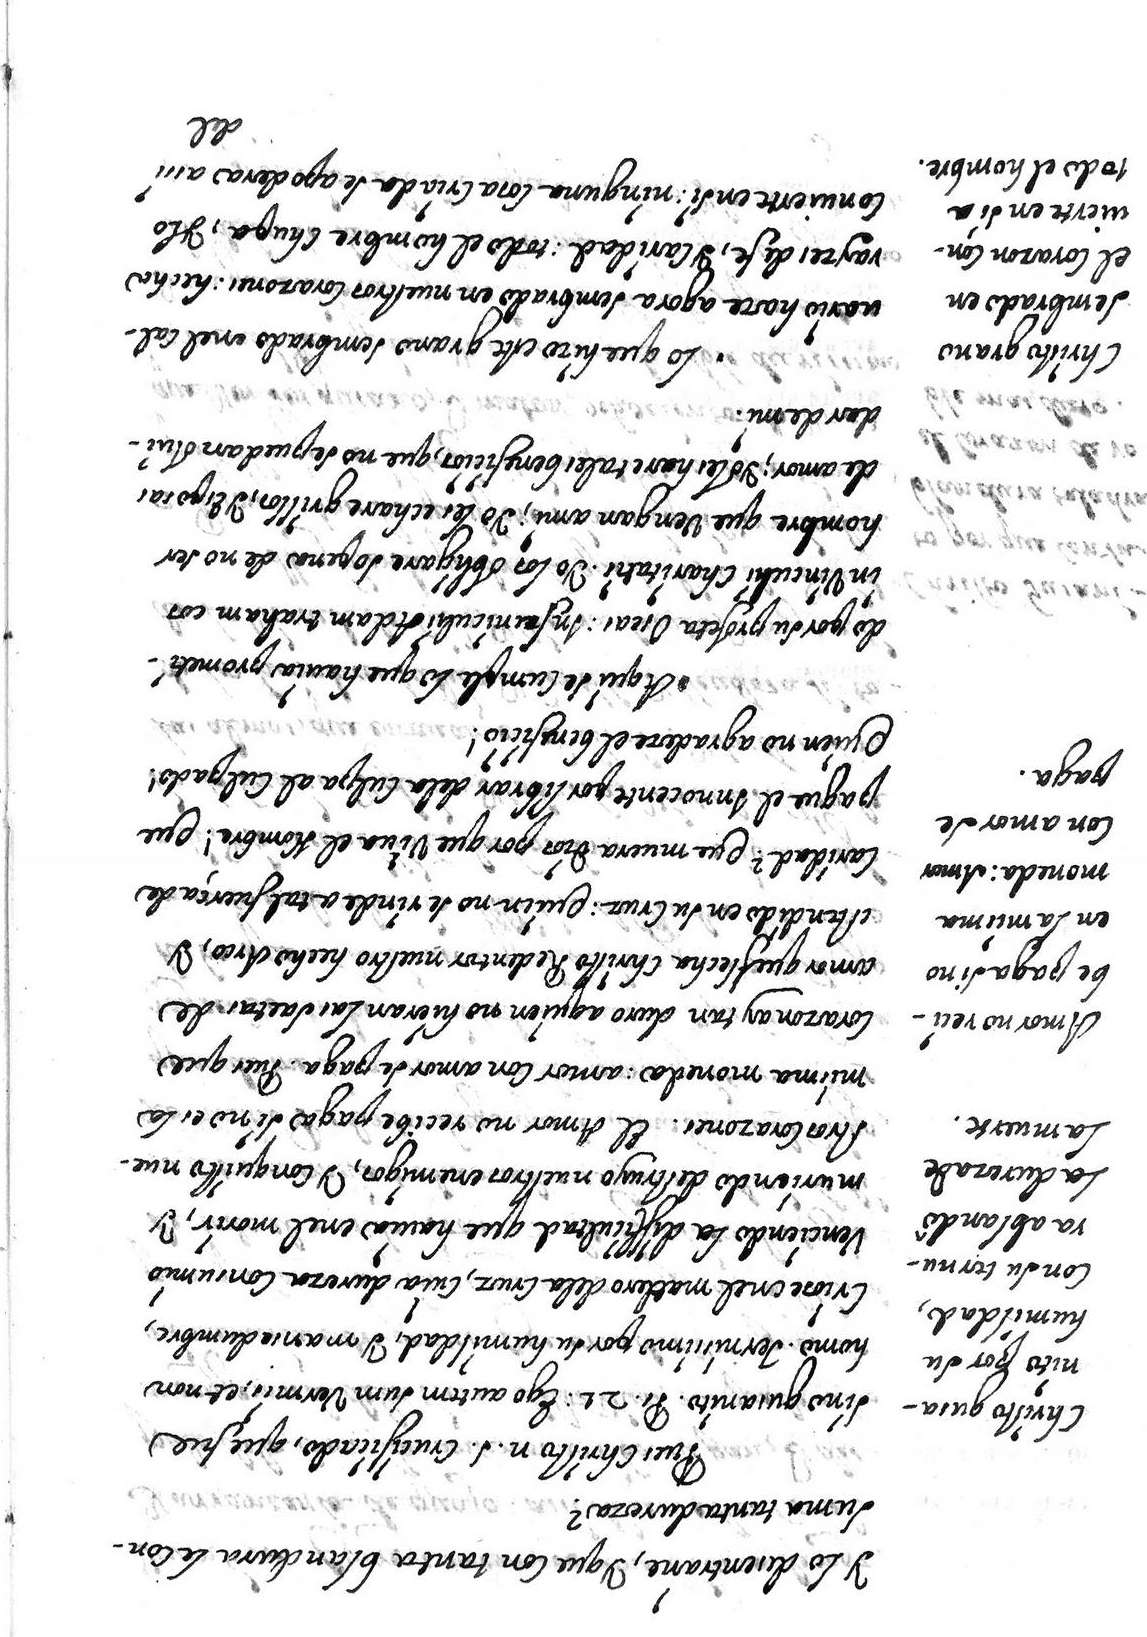 Y lo disentrane, y que con tanta blandura le con-
suma tanta dureza?
Pues Christo n. s. Crucificado, que fue
sino gusanito. Ps. 21. Ego autem sum Vermis, et non
homo. Ternisimo por su humildad, y mansedumbre,
criose en el madero de la Cruz, cuia dureza consumio
Venciendo la difficultad que hauia en el morir, y
muriendo destruyo nuestros enemigos, y conquisto nue-
stros corazones. El Amor no recibe paga si no es la
misma moneda: amor con amor se paga. Pues que
corazon ay tan duro a quien no hieran las saetas de
amor que flecha Christo Redentor nuestro hecho Arco, y
estandido en su Cruz: Quien no se rinde a tal fuerça de
Caridad? Que muera Dios por que Viua el Hombre! Que
pague el Innocente por librar de la culpa al culpado!
Quien no agradece el beneficio!
Aqui se cumple lo que hauia prometi-
do por su profeta Oseas: In funiculis Adam traham eos
in Vinculis Charitatis. Yo los obligare sopena de no ser
hombre que vengan a mi; yo les echare grillos, y esposas
de amor; yo les hare tales beneficios, que no se puedan olui-
dar de mi.
Lo que hizo este grano sembrado en el Cal-
uario hace agora sembrado en nuestros corazones: hecha
rayzes de fe, y Caridad: todo el hombre chupa, y lo
conuierte en si: ninguna cosa criada se apodera assi
del
Christo gusa-
nito por su
humildad,
con su ternu-
ra ablandó
la dureza de
la muerte.
Amor no reci-
be paga sino
en la misma
moneda: Amor
con amor se
paga.
Christo grano
sembrado en
el corazon con-
uierte en si a
todo el hombre.